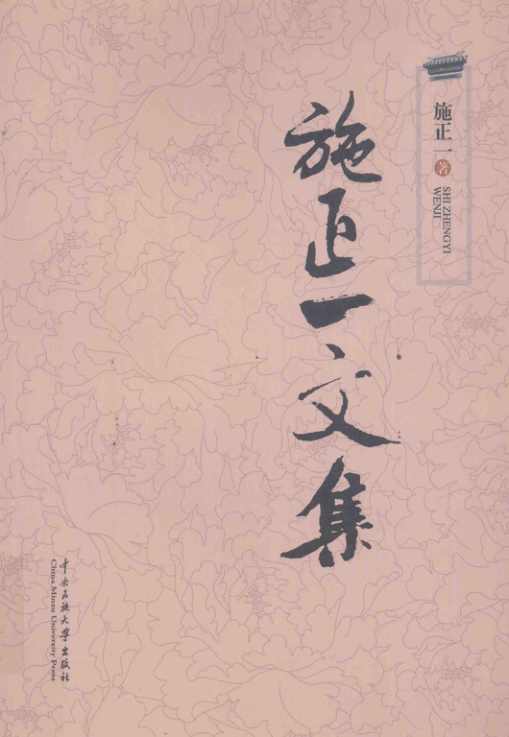 施正一 著
SHI ZHENGYI
WENJI
施正一文集
中央民族大学出版社
China Minzu University Press